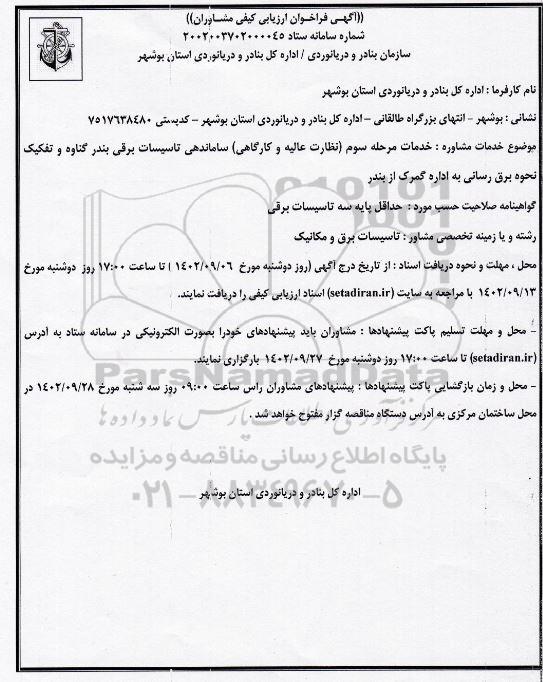 ((آگهی فراخوان ارزیابی کیفی مشاوران))
شماره سامانه ستاد ۲۰۰۲۰۰۳۷۰۲۰۰۰۰۴۵
سازمان بنادر و دریانوردی / اداره کل بنادر و دریانوردی استان بوشهر
نام کارفرما : اداره کل بنادر و دریانوردی استان بوشهر
نشانی : بوشهر - انتهای بزرگراه طالقانی – اداره کل بنادر و دریانوردی استان بوشهر – کدپستی ۷۵۱۷۶۳۸۴۸۰
موضوع خدمات مشاوره : خدمات مرحله سوم (نظارت عالیه و کارگاهی) ساماندهی تاسیسات برقی بندر گناوه و تفکیک
نحوه برق رسانی به اداره گمرک از بندر
گواهینامه صلاحیت حسب مورد : حداقل پایه سه تاسیسات برقی
رشته و یا زمینه تخصصی مشاور : تاسیسات برق و مکانیک
محل ، مهلت و نحوه دریافت اسناد : از تاریخ درج آگهی (روز دوشنبه مورخ ۱۴۰۲/۰۹/۰۶ ) تا ساعت ۱۷:۰۰ روز دوشنبه مورخ
۱۴۰۲/۰۹/۱۳ با مراجعه به سایت (setadiran.ir) اسناد ارزیابی کیفی را دریافت نمایند.
– محل و مهلت تسلیم پاکت پیشنهادها : مشاوران باید پیشنهادهای خودرا بصورت الکترونیکی در سامانه ستاد به آدرس
(setadiran.ir) تا ساعت ۱۷:۰۰ روز دوشنبه مورخ ۱۴۰۲/۰۹/۲۷ بارگزاری نمایند.
– محل و زمان بازگشایی پاکت پیشنهادها : پیشنهادهای مشاوران راس ساعت ۰۹:۰۰ روز سه شنبه مورخ ۱۴۰۲/۰۹/۲۸ در
محل ساختمان مرکزی به آدرس دستگاه مناقصه گزار مفتوح خواهد شد .
ParsNamadData
پایگاه اطلاع رسانی مناقصه و مزایده
اداره کل بنادر و دریانوردی استان بوشهر
۰۲۱-۸۸۳۴۹۶۷۰-۵